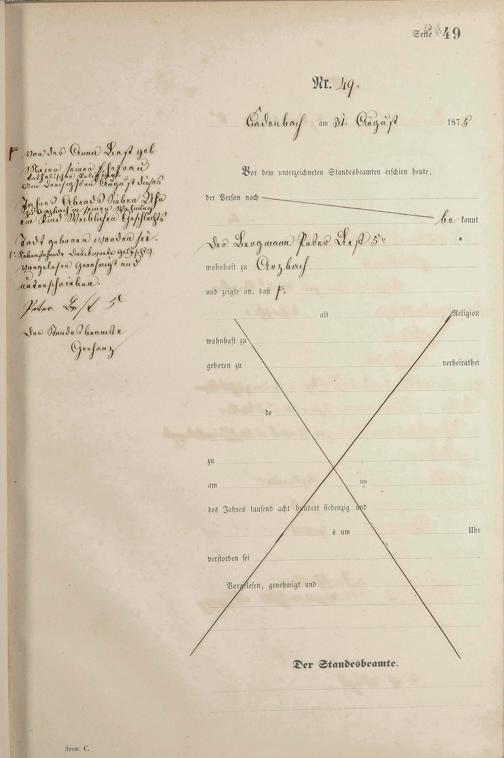 Seite 49
Nr. 49.
Cadenbach am 31. August 1875
Vor dem unterzeichneten Standesbeamten erschien heute,
der Person nach
be kannt
der Bergmann Peter Best 5r
wohnhaft zu Arzbach
und zeigte an, daß
alt Religion
wohnhaft zu
geboren zu verheirathet
de
zu
am ten
des Jahres tausend acht hundert siebenzig und
s um Uhr
verstorben sei
Vorgelesen, genehmigt und
Der Standesbeamte.
von der Anna Best geb.
seiner Ehefrau
am dreißigsten August dieses
Jahres Abends sieben Uhr
ein Kind weiblichen Geschlechts
Todt geboren worden sei.
Vorgelesen Genehmigt und
unterschrieben.
Peter Best 5
Der Standesbeamte
Form C.